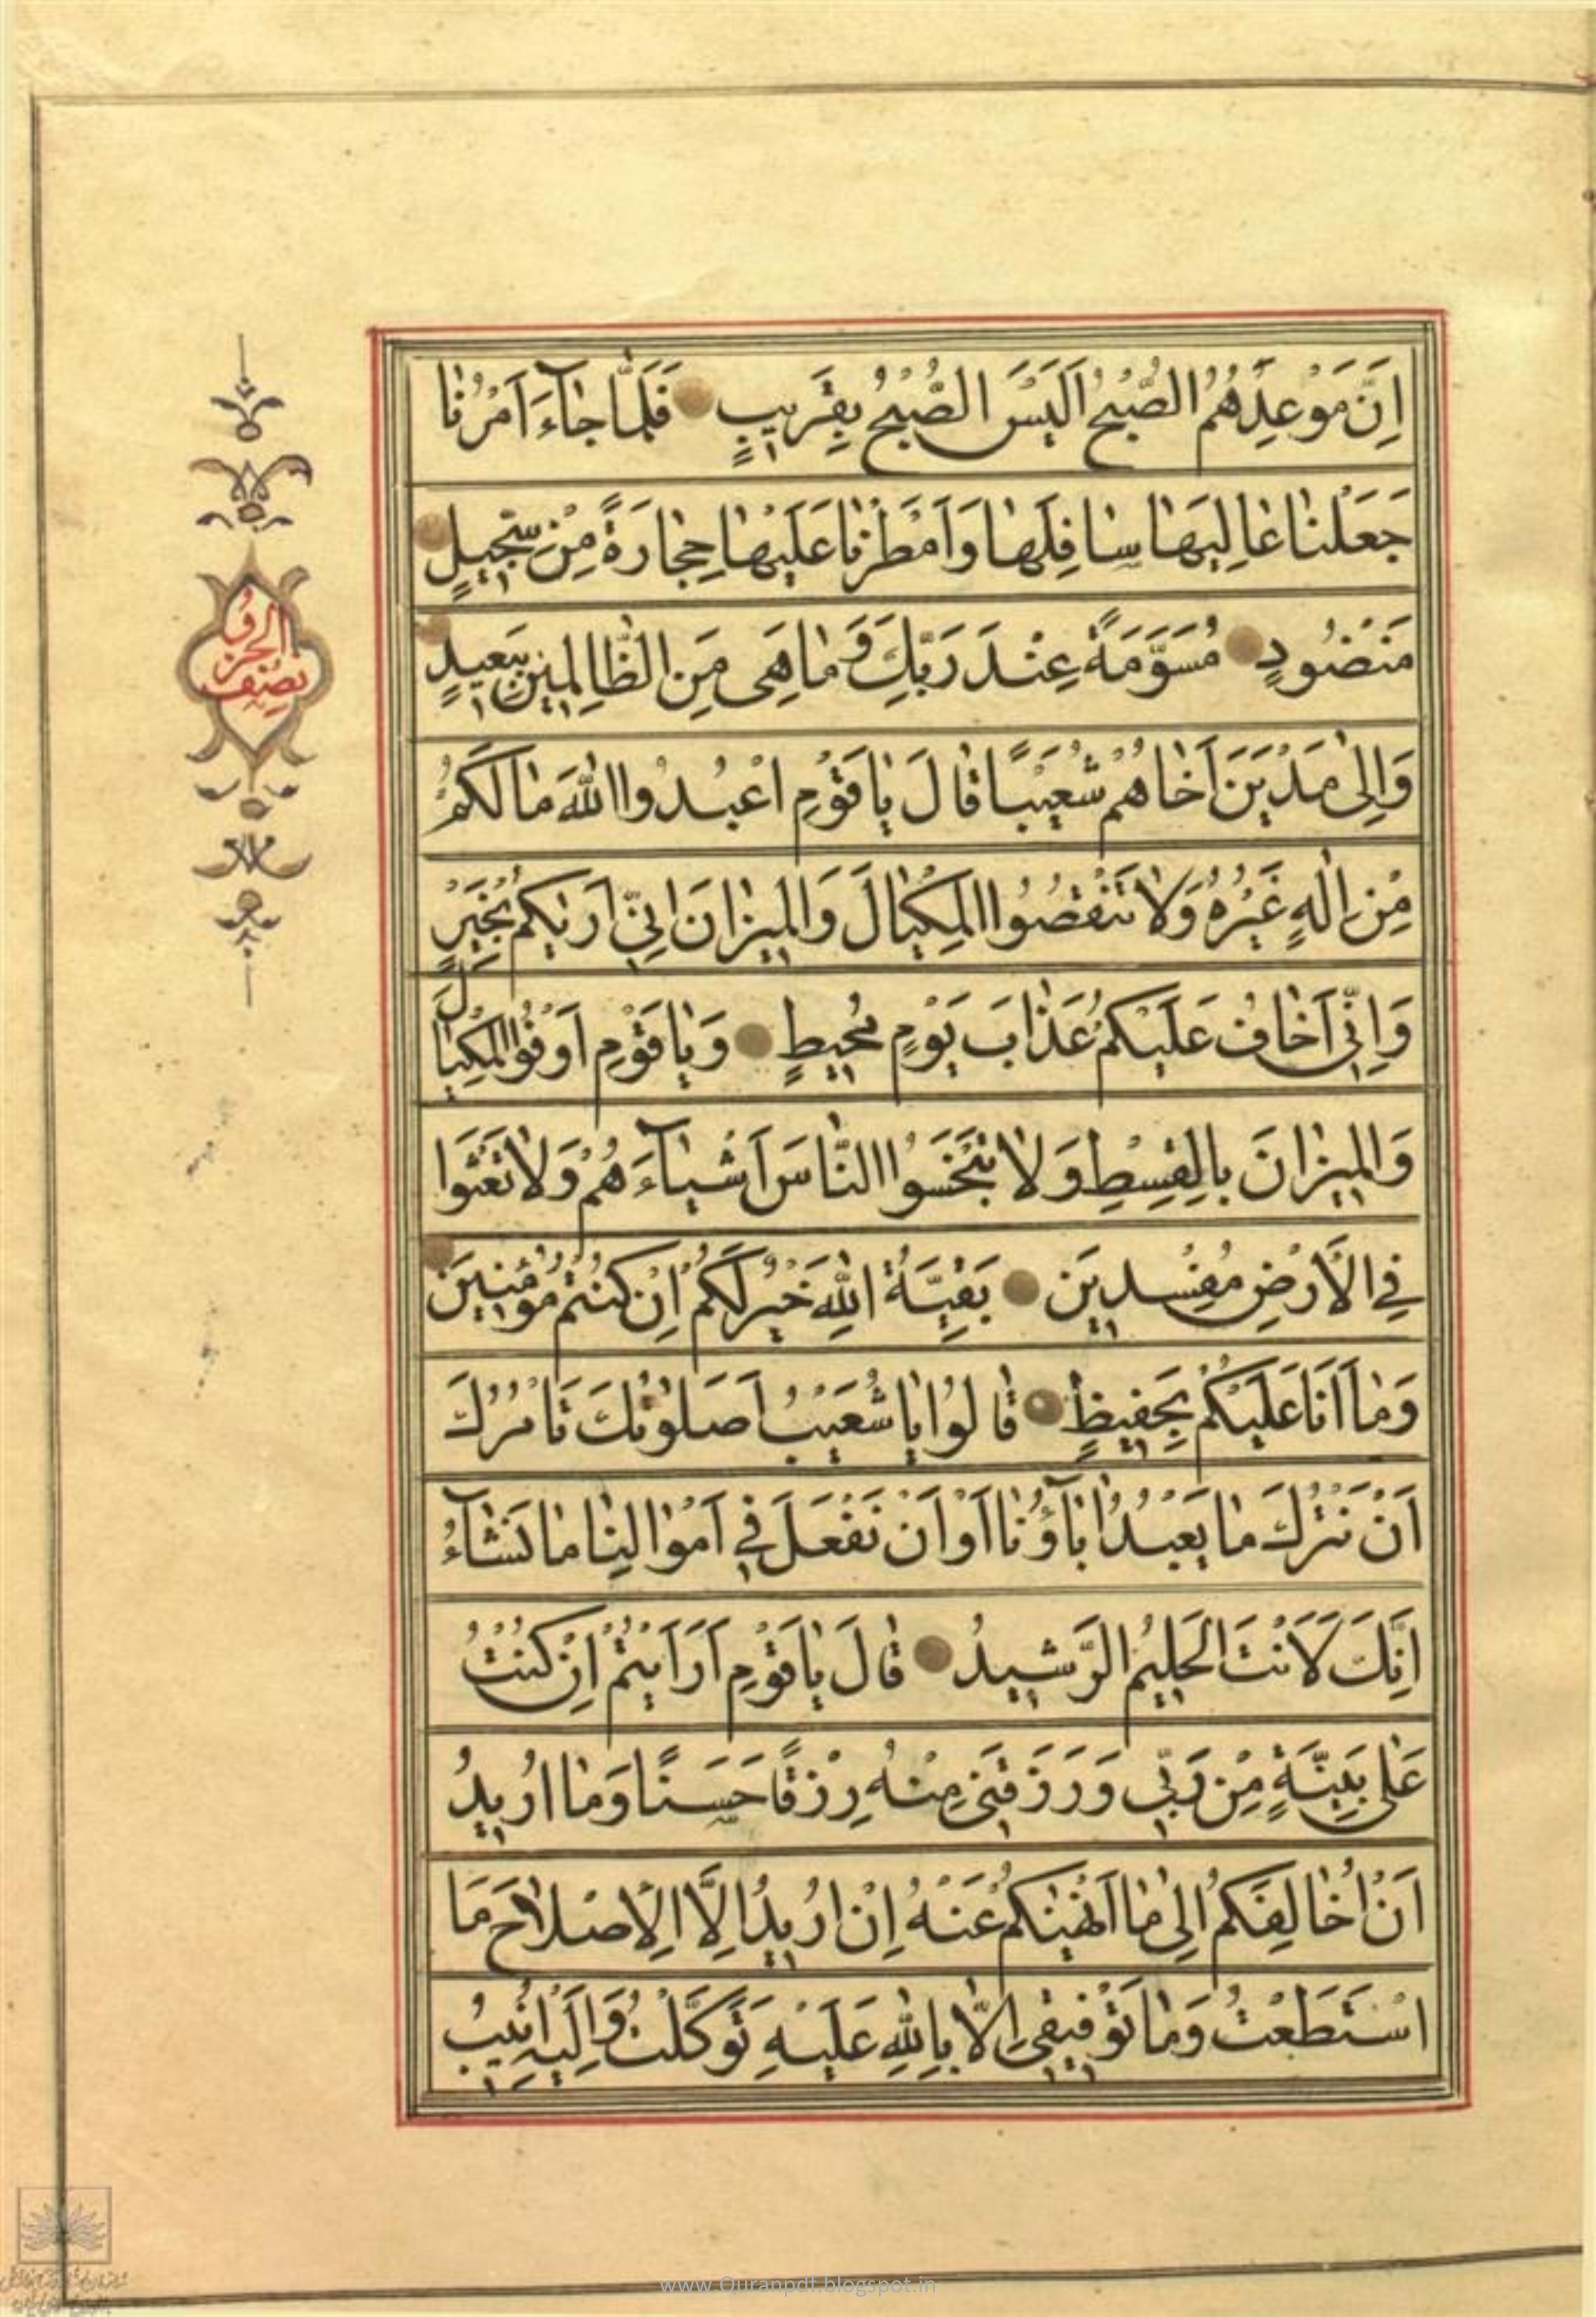 اِنَّ مَوْعِدَهُمُ الصُّبْحُ اَلَيْسَ الصُّبْحُ بِقَرِيبٍ فَلَمَّا جَاۤءَ اَمْرُنَا
جَعَلْنَا عَالِيَهَا سَافِلَهَا وَاَمْطَرْنَا عَلَيْهَا حِجَارَةً مِنْ سِجِّيلٍ
مَنْضُودٍ مُسَوَّمَةً عِنْدَ رَبِّكَ وَمَا هِىَ مِنَ الظَّالِمِينَ بِبَعِيدٍ
وَاِلٰى مَدْيَنَ اَخَاهُمْ شُعَيْبًا قَالَ يَا قَوْمِ اعْبُدُوا اللّٰهَ مَا لَكُمْ
مِنْ اِلٰهٍ غَيْرُهُ وَلَا تَنْقُصُوا الْمِكْيَالَ وَالْمِيزَانَ اِنِّى اَرٰيكُمْ بِخَيْرٍ
وَاِنِّى اَخَافُ عَلَيْكُمْ عَذَابَ يَوْمٍ مُحِيطٍ وَيَا قَوْمِ اَوْفُوا الْمِكْيَالَ
وَالْمِيزَانَ بِالْقِسْطِ وَلَا تَبْخَسُوا النَّاسَ اَشْيَاۤءَهُمْ وَلَا تَعْثَوْا
فِى الْاَرْضِ مُفْسِدِينَ بَقِيَّةُ اللّٰهِ خَيْرٌ لَكُمْ اِنْ كُنْتُمْ مُؤْمِنِينَ
وَمَا اَنَا عَلَيْكُمْ بِحَفِيظٍ قَالُوا يَا شُعَيْبُ اَصَلٰوتُكَ تَاْمُرُكَ
اَنْ نَتْرُكَ مَا يَعْبُدُ اٰبَاۤؤُنَا اَوْ اَنْ نَفْعَلَ فِى اَمْوَالِنَا مَا نَشَاۤءُ
اِنَّكَ لَاَنْتَ الْحَلِيمُ الرَّشِيدُ قَالَ يَا قَوْمِ اَرَاَيْتُمْ اِنْ كُنْتُ
عَلٰى بَيِّنَةٍ مِنْ رَبِّى وَرَزَقَنِى مِنْهُ رِزْقًا حَسَنًا وَمَا اُرِيدُ
اَنْ اُخَالِفَكُمْ اِلٰى مَا اَنْهٰيكُمْ عَنْهُ اِنْ اُرِيدُ اِلَّا الْاِصْلَاحَ مَا
اسْتَطَعْتُ وَمَا تَوْفِيقِى اِلَّا بِاللّٰهِ عَلَيْهِ تَوَكَّلْتُ وَاِلَيْهِ اُنِيبُ
نصف
الحزب
www.Quranpdf.blogspot.in